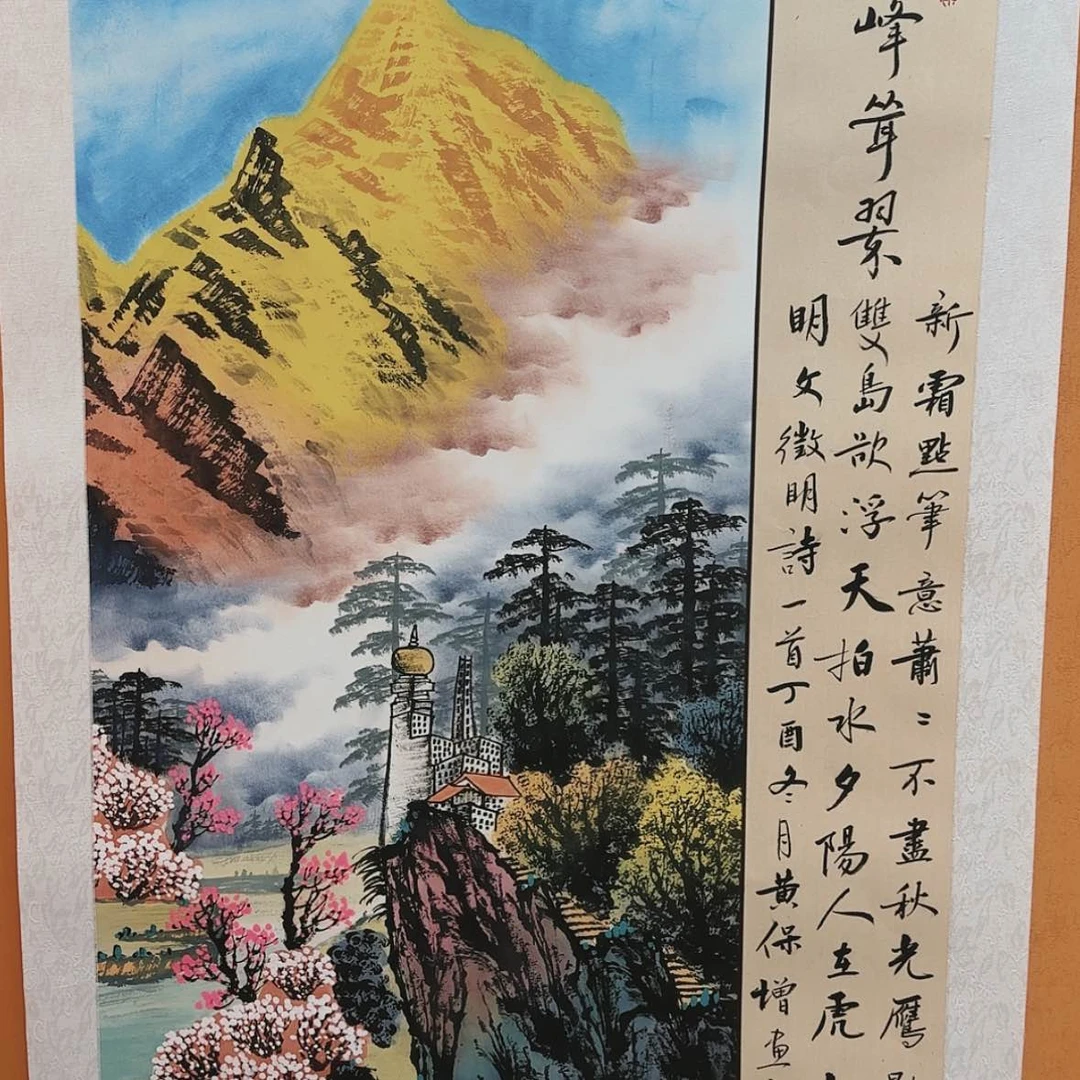 峰聳翠
新霜點筆意蕭〻不盡秋光鴈
雙島欲浮天拍水夕陽人在虎
明文徵明詩一首丁酉冬月黃保增畫